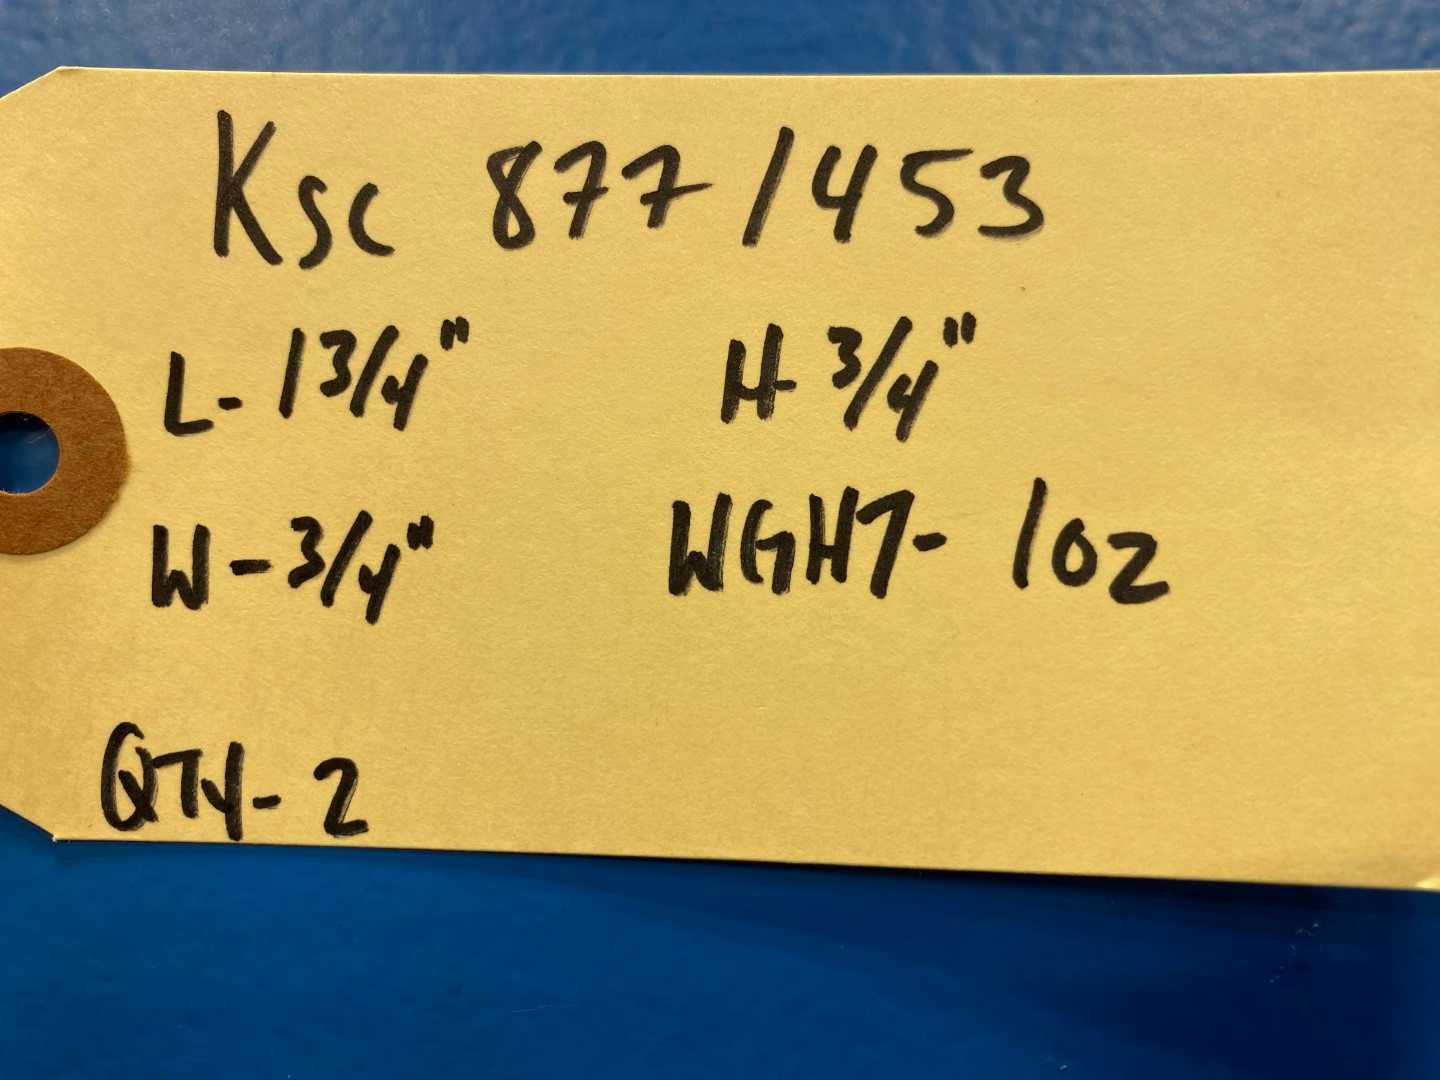 Ksc 877 / 453
L- 1 3/4" H- 3/4"
W- 3/4" WGHT- 1oz
QTY- 2